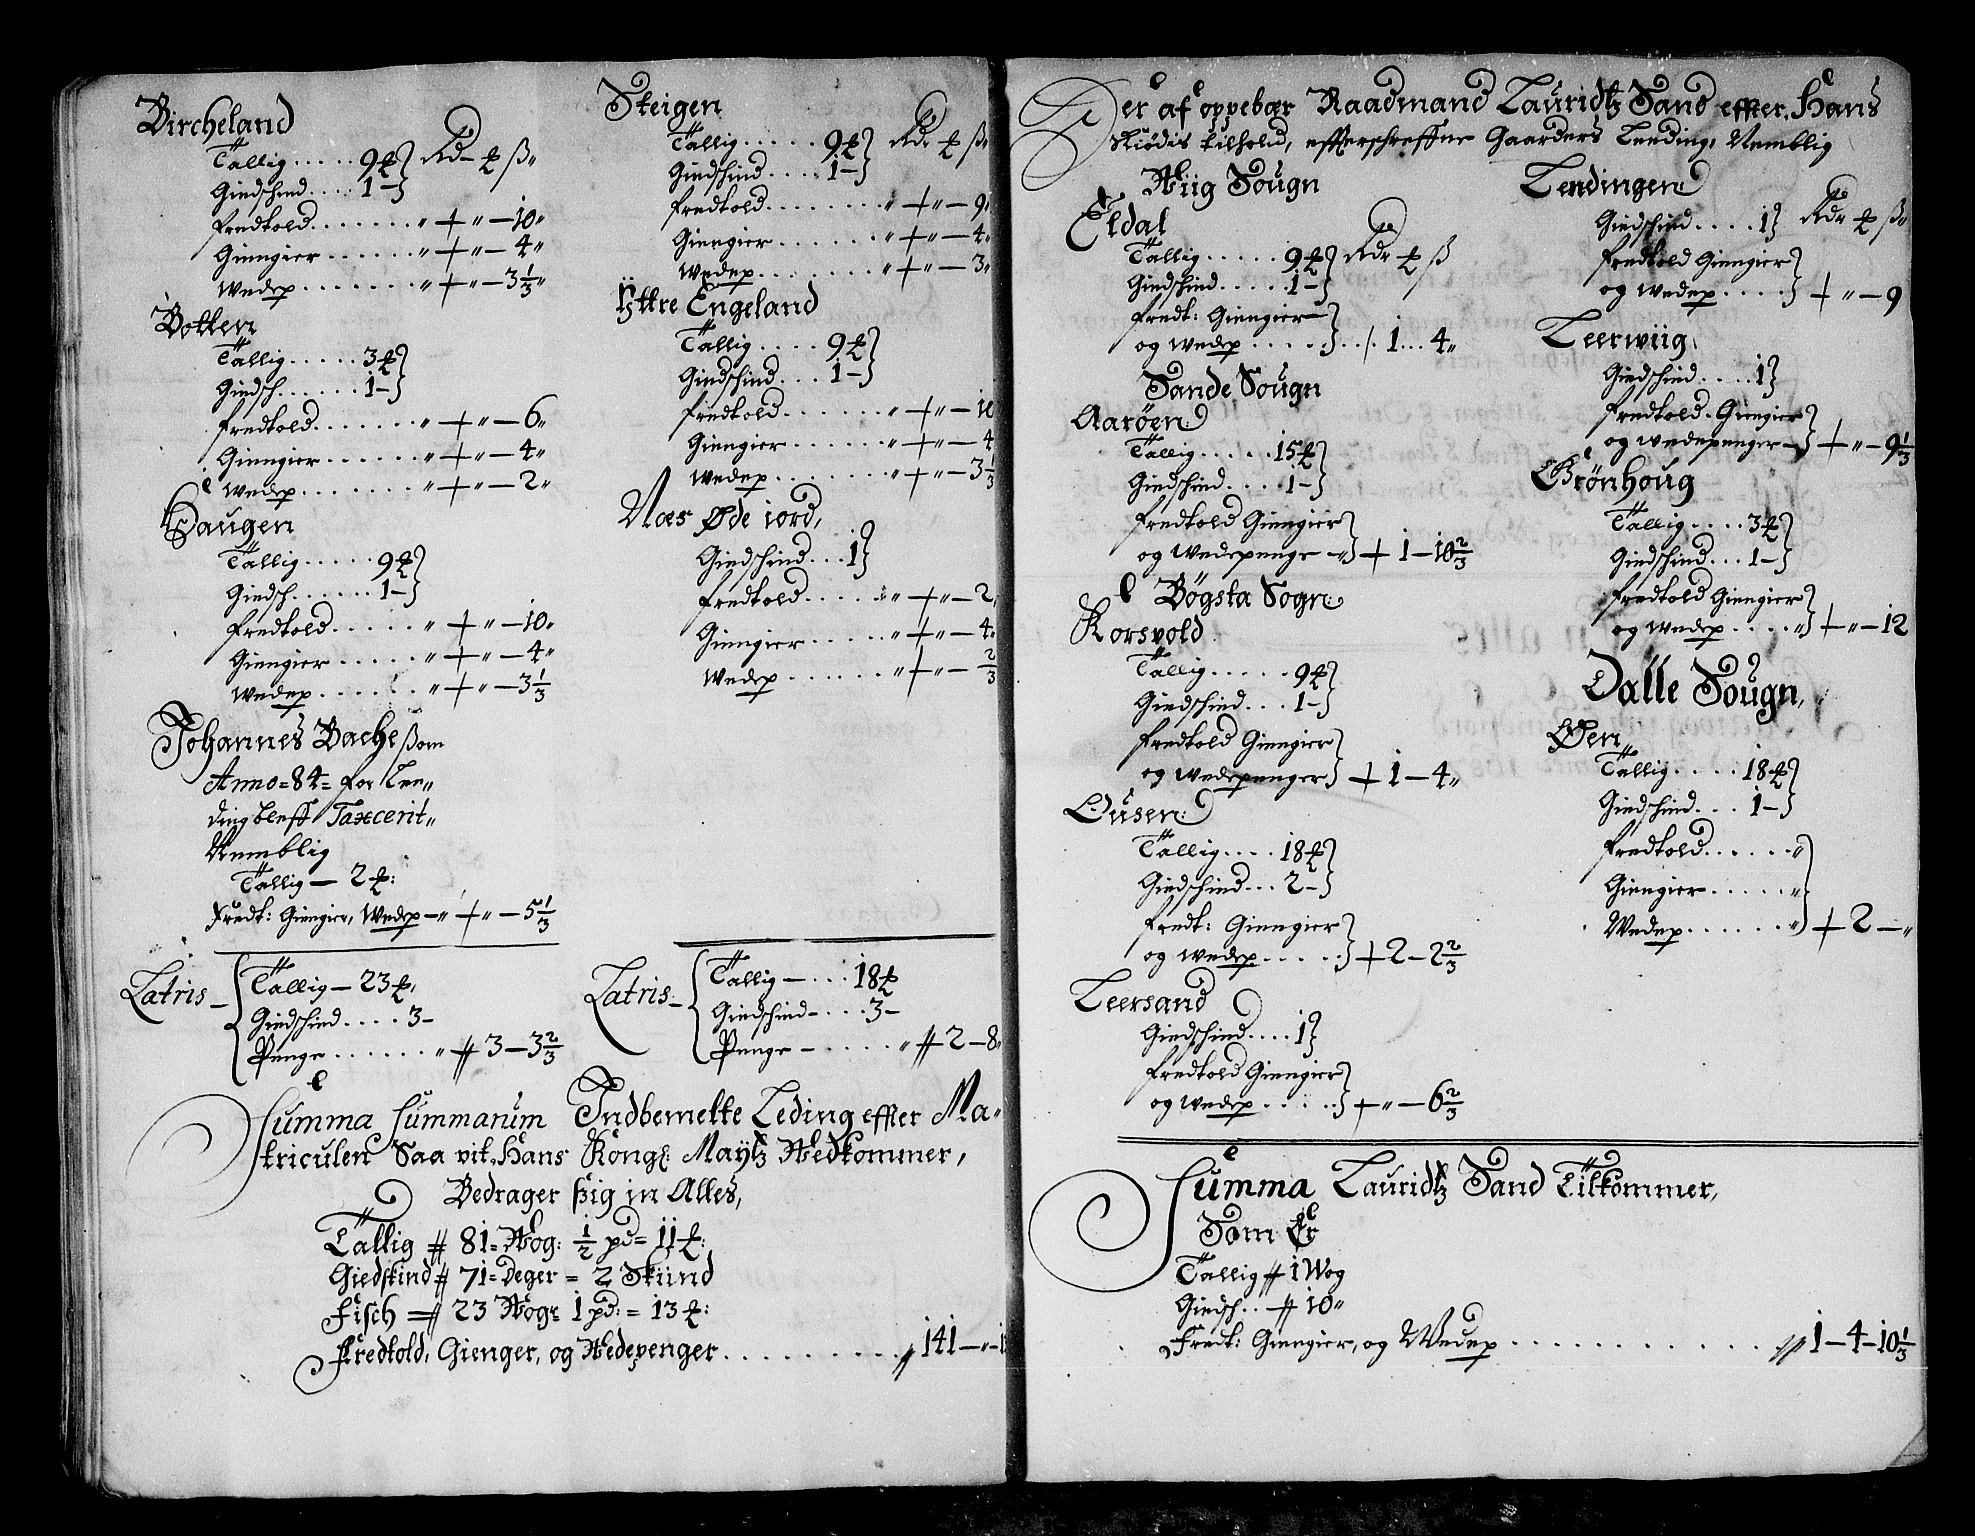 Bircheland
Tallig..... 9 ℔ Rdr ℔ ß
Giedschind.... 1 –
fredtold....... „ + „ – 10 „
Giengier...... „ + „ – 4 „
wedep....... „ + „ – 3 1/3 „
Botten
Tallig..... 3 ℔
Giedsch...... 1 –
fredtold....... „ + „ – 6 „
Giengier...... „ + „ – 4 „
wedep....... „ + „ – 2 „
Haugen
Tallig..... 9 ℔
Giedsch...... 1 –
fredtold...... „ + „ – 10 „
Giengier...... „ + „ – 4 „
wedep...... „ + „ – 3 1/3
Johannes Bache ßom
Anno = 84 = for Lee=
ding bleff Taxcerit „
Nemblig
Tallig – 2 ℔:
Fredt: Giengier, Wedep – „ + „ – 5 1/3
Latris –
Tallig – 23 ℔,
Giedschind.... 3 –
Penge....... „ # 3 – 3 2/3
Steigen
Tallig...... 9 ℔ Rdr ℔ ß
Giedschind.... 1 –
fredtold........ „ + „ – 9 „
Giengier....... „ + „ – 4 „
wedep........ „ + „ – 3 „
Yttre Engeland
Tallig.... 9 ℔
Giedschind.... 1 –
fredtold....... „ + „ – 10
Giengier....... „ + „ – 4
wedep....... „ + „ – 3 1/3
Næs Øde iord,
Giedschind... 1
fredtold...... „ + „ – 2,
Giengier...... „ + „ – 4 „
wedep...... „ + „ – 2/3
Latris –
Tallig –... 18 ℔
Giedschind –... 3 –
Penge –..... „ # 2 – 8 „
Summa Summarum Indbemelte Leding effter Ma=
triculen Saa vit, Hans Kongl: Maytz Wedkommer,
Bedrager ßig in Alles,
Tallig # 81 = Wog: 1/2 pd = 11 ℔:
Giedskind # 71 = Deger = 2 Skiind
Fisch = # 23 Wogr = 1 pd: = 13 ℔:
Fredtold, Gienger, og Wedepenger.......... # 141 – „ – 1
Der af oppebær Raadmand Lauridtz Sand effter Hans
Skiødis tilhold, effterschreffne Gaarders Leeding, Nemblig
Wiig Sougn
Eldal
Tallig..... 9 ℔ Rdr ℔ ß
Giedschind..... 1 –
fredt: Giengier –
og wedep...... /. 1... 4 „
Sande Sougn
Aarøen
Tallig..... 15 ℔
Giedschind.... 1 –
fredtold Giengier
og wedepenge – „ + 1 – 10 2/3
Bøgsta Sogn
Korsvold
Tallig..... 9 ℔
Giedschind... 1 –
fredtold Giengier
og wedepenger + 1 – 4 „
Ousen
Tallig.... 18 ℔
Giedschind... 2 –
fredt: Giengier
og wedep..... + 2 – 2 2/3
Leersand
Giedschind.... 1
fredtold Giengier
og wedep..... + „ – 6 2/3
Lendingen
Giedschind.... 1 Rdr ℔ ß
fredtold Giengier
og wedep.... + „ – 9
Leerwiig,
Giedschind.... 1
fredtold. Giengier
og wedepenger – + „ – 9 1/3
Grönhoug
Tallig.... 3 ℔
Giedschind... 1 –
fredtold Giengier
og wedep.... „ + „ – 12
Dalle Sougn,
Øen
Tallig.... 18 ℔
Giedschind... 1 –
fredtold...... „
Giengier..... „
Wedep...... „ + 2 – „
Summa Lauridtz Sand Tilkommer,
Som Er
Tallig # 1 Wog
Giedsch.. # 10 „
Fredt: Giengier, og Wedep........... # 1 – 4 – 10 1/3